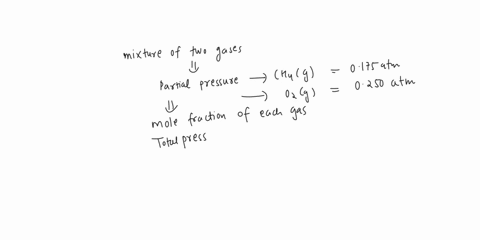 mixture of two gases
⇓
Partial pressure → CH4(g) = 0.175 atm
→ O2(g) = 0.250 atm
⇓
mole fraction of each gas
Total press